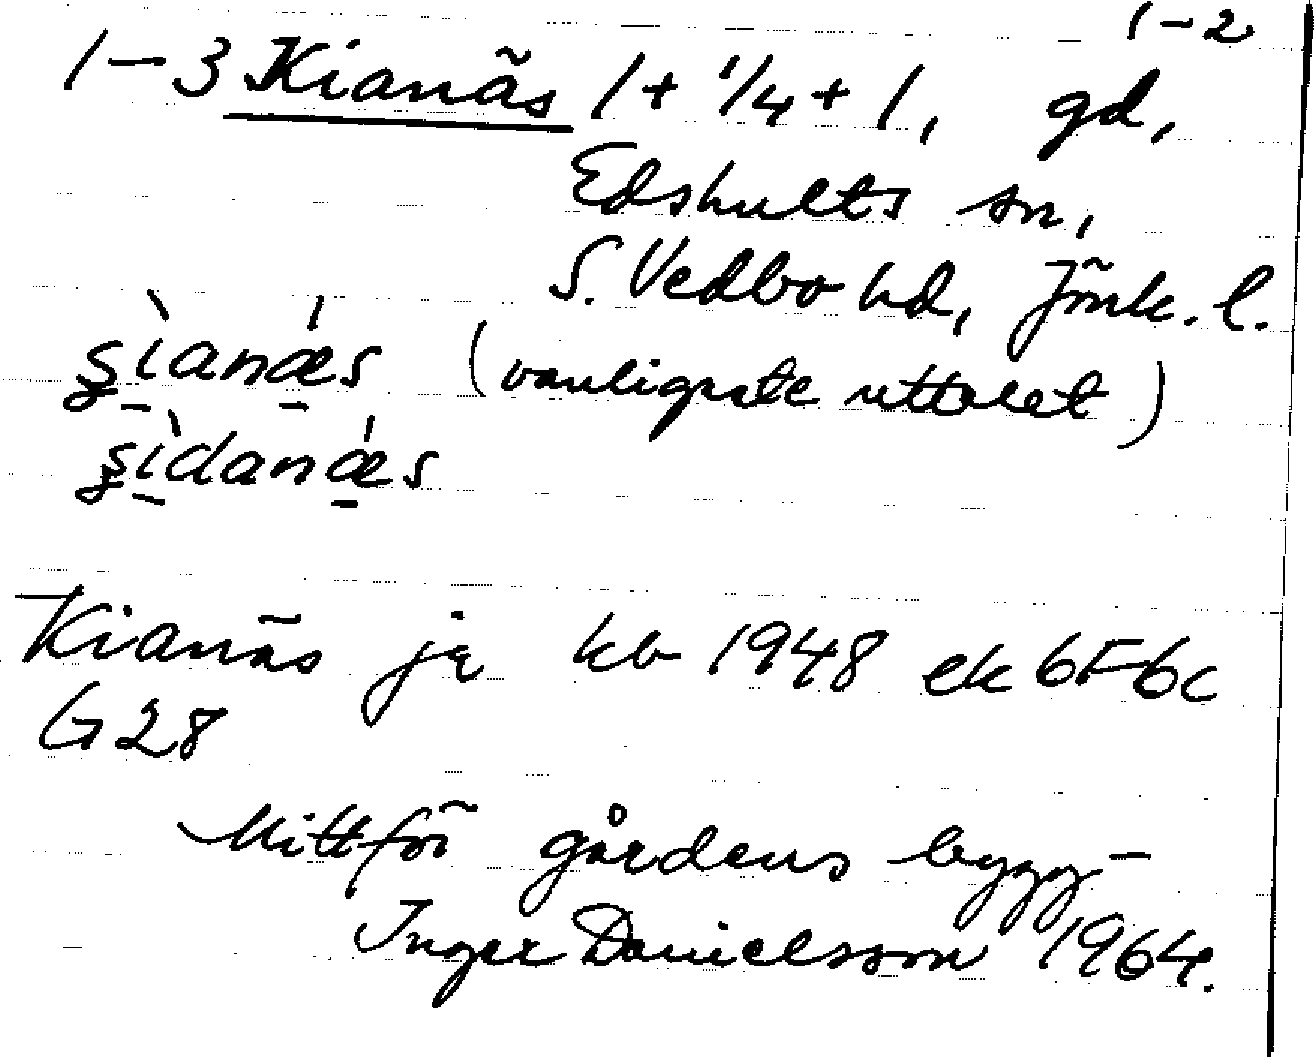 1-2
1-3 Kianäs 1 + 1/4 + 1, gd,
Edshults sn,
S. Vedbo hd, Jönk. l.
s̡ı̀anǽs (vanligaste uttalet)
s̡ı̀danǽs
Kianäs ja kb 1948 ek 6F6c
G28
Mittför gårdens bygg-
Inger Danielsson 1964.